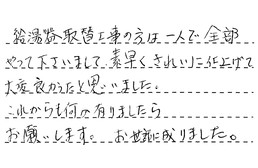 給湯器取替工事の方は一人で全部
やって下さいまして、素早くきれいに仕上げて
大変良かったと思いました。
これからも何か有りましたら
お願いします。お世話に成りました。